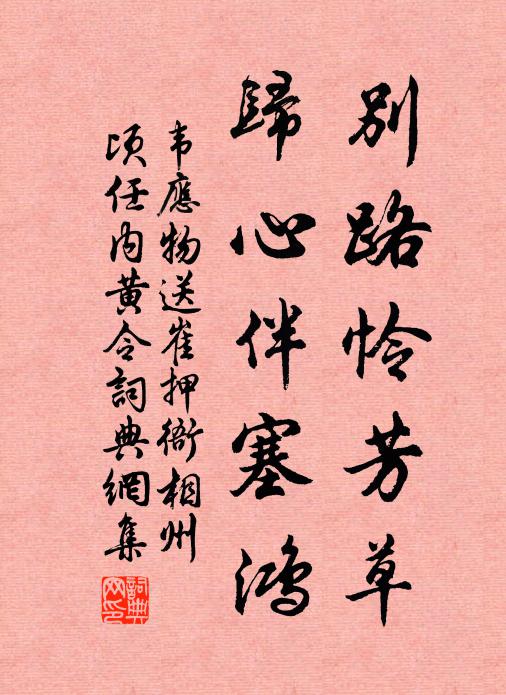 別路怜芳草
歸心伴塞鴻
韦應物送崔押衙相州
頃任内黄令詞典網集
詞典网印